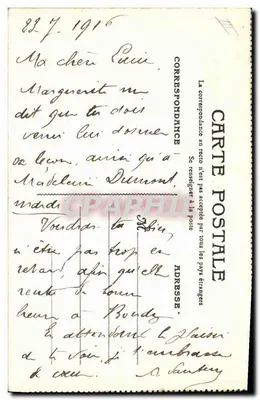 22.7.1916
Ma chère
Marguerite me
dit que tu dois
venir lui donner
sa leçon, ainsi qu'à
Madeleine Dumont
mardi
Voudrais tu bien
n'être pas trop en
retard, afin qu'elle
rentre de bonne
heure à Bondy
En attendant le plaisir
de te voir je t'embrasse
de cœur.
CARTE POSTALE
La correspondance au recto n'est pas acceptée par tous les pays étrangers
Se renseigner à la poste
CORRESPONDANCE
ADRESSE
M